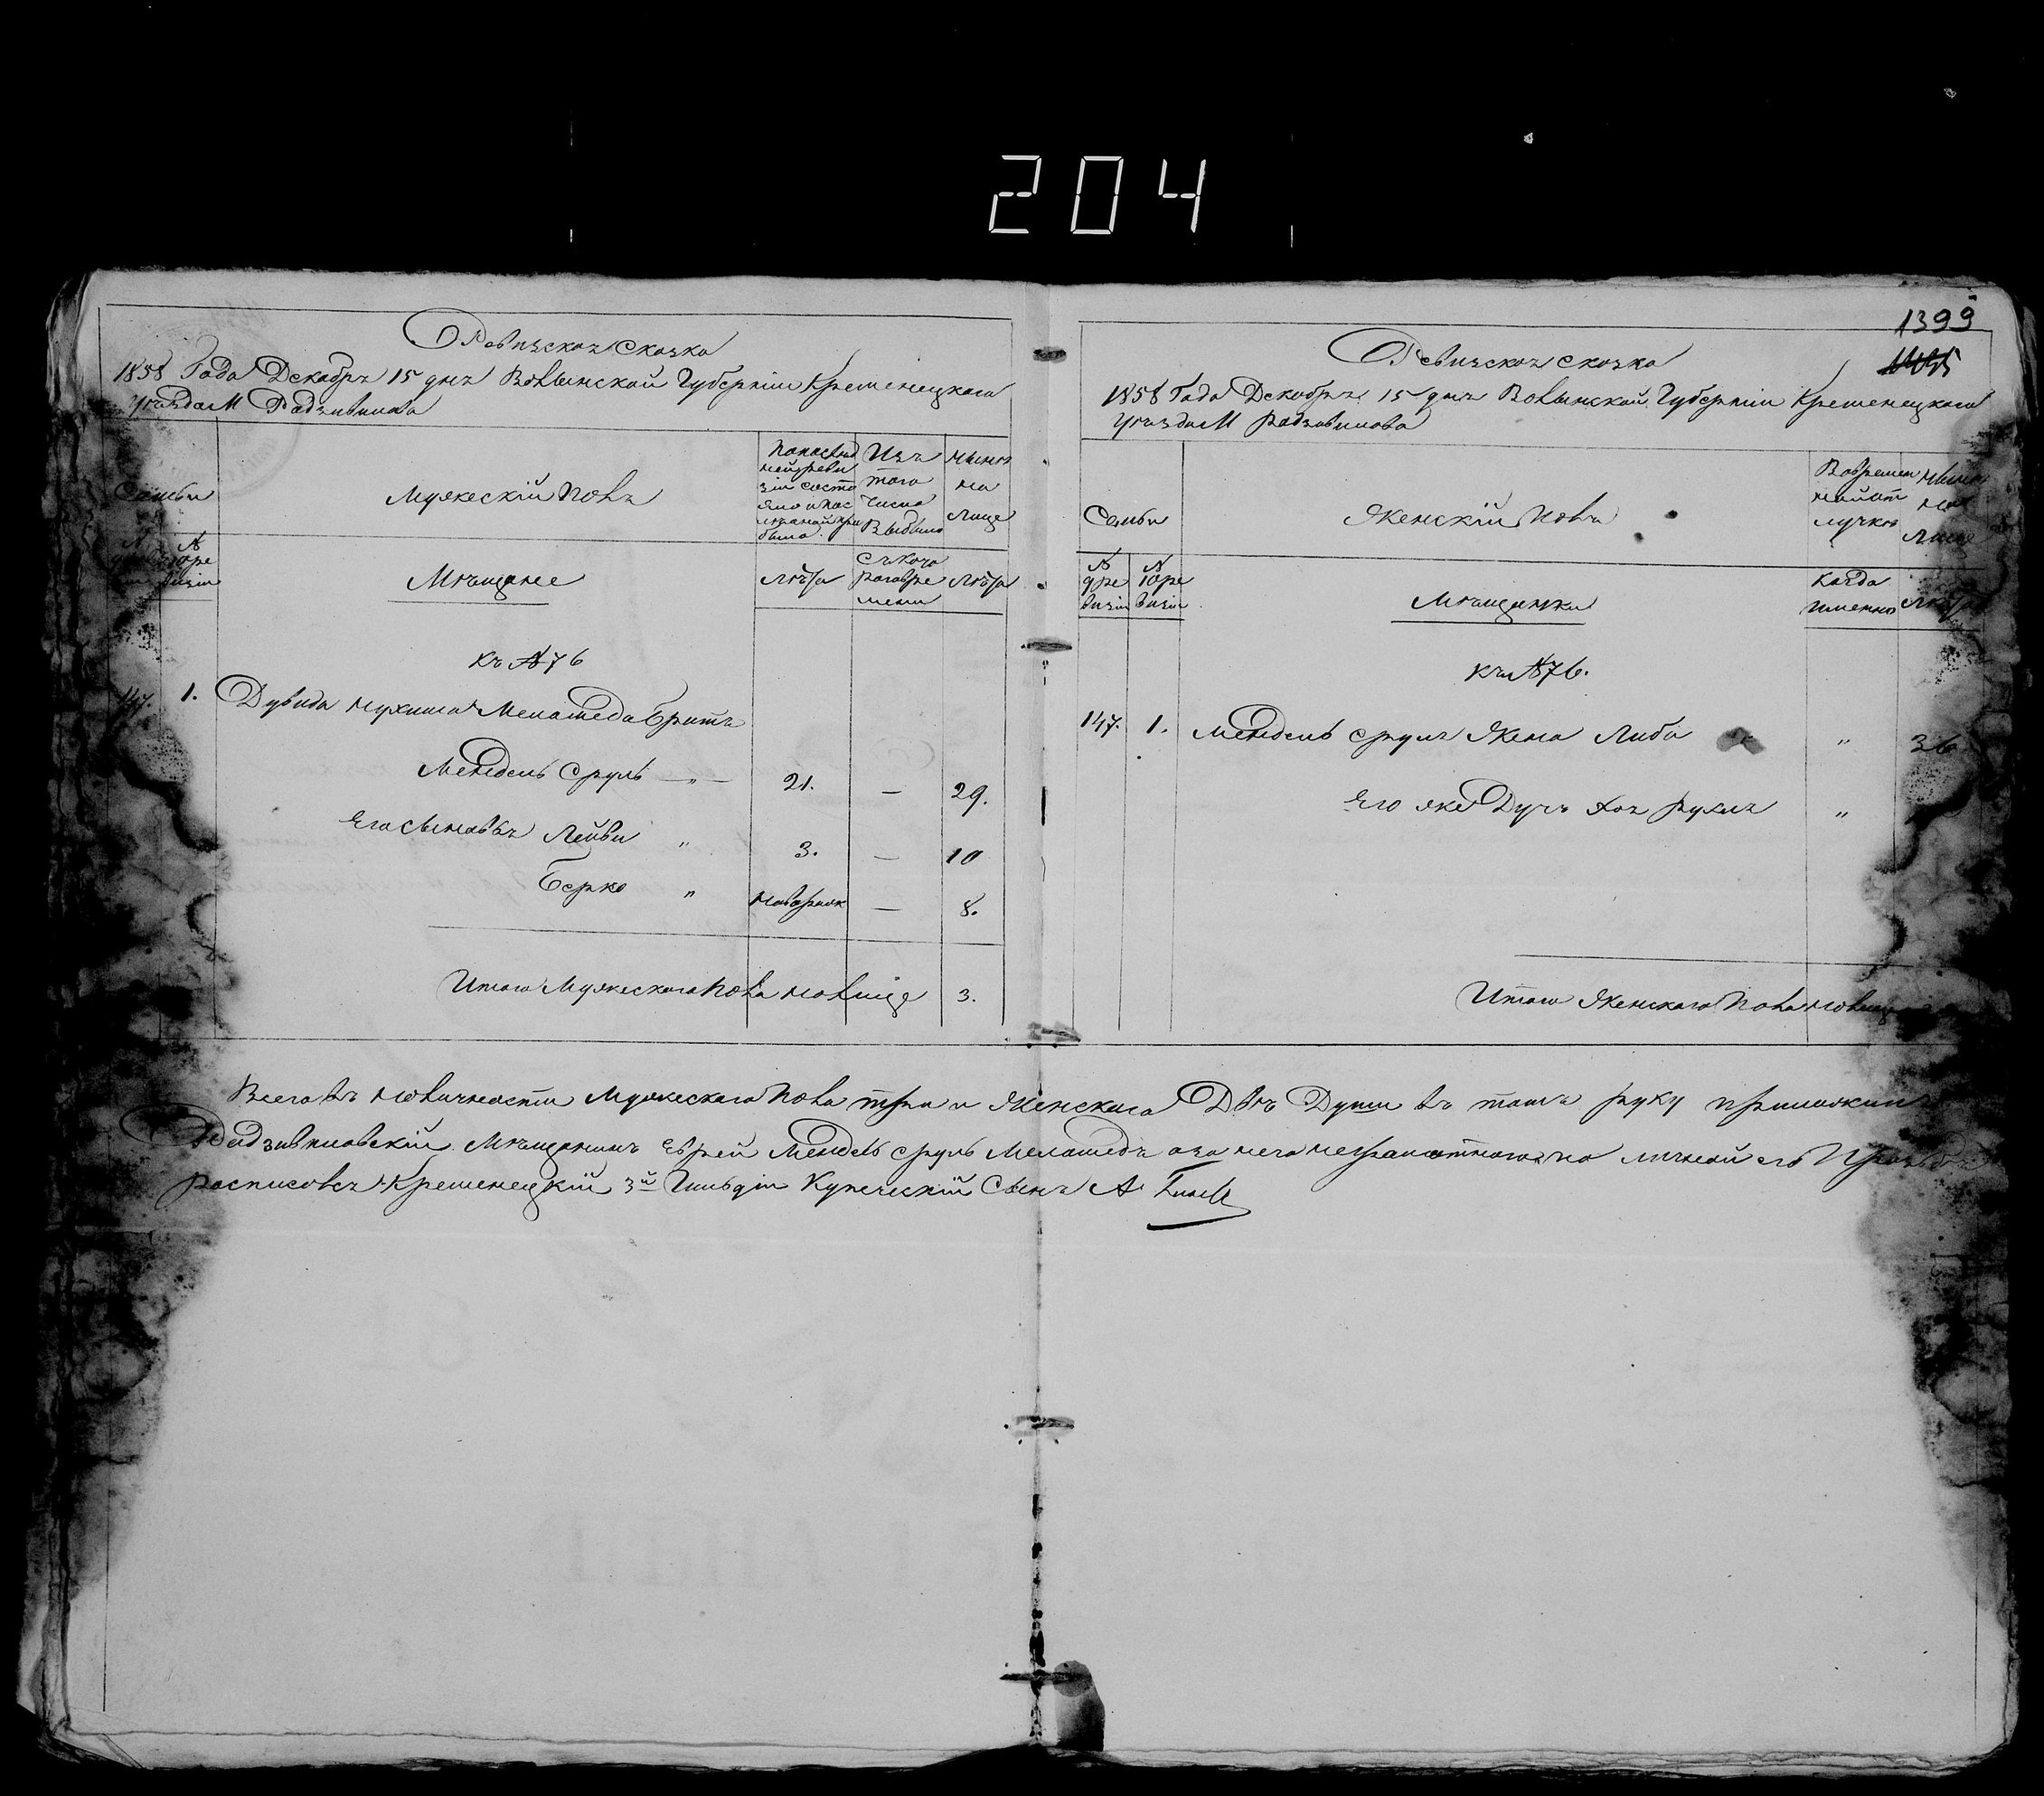 204
Ревизская сказка
1858 Года Декабря 15 дня Волынской Губернии Кременецкого
уезда М Радзивилова
Семьи
Мужескій Полъ
По послед
ней реви
зіи состо
яло и пос
ле оной при
было
Изъ
того
числа
Выбыло
Ныне
на
Лице
№
№
10 ре
визіи
Мѣщане
лѣта
Съ кого
раго вре
мени
лѣта
Къ № 76
147. 1. Дувида Нухима Меламеда братъ
Мендель Сруль " 21. — 29.
Его сыновья Лейви " 3. — 10
Берко " новорож — 8.
Итого Мужеского Пола налице 3.
1399
Ревизская сказка
1858 Года Декабря 15 дня Волынской Губерніи Кременецкого
уезда М Радзивилова
Семьи
Женскій Полъ
Во времен
ной от
лучке
Ныне
на
Лице
№
9 ре
визіи
№
10 ре
визіи
Мѣщанки
Когда
именно
Лета
Къ № 76.
147. 1. Мендель Сруля Жена Либа " 36
Его же Дучь Хая Рухля "
Итого Женского Пола налице
Всего въ наличности Мужеского Пола три и Женского Двѣ Души въ томъ руку приложилъ
Радзивиловскій Мѣщанинъ Еврей Мендель Сруль Меламедъ а за него неграмотного по личной его Прозьбѣ
росписовся Кременецкій 3й Гильдіи Купеческій Сынъ А